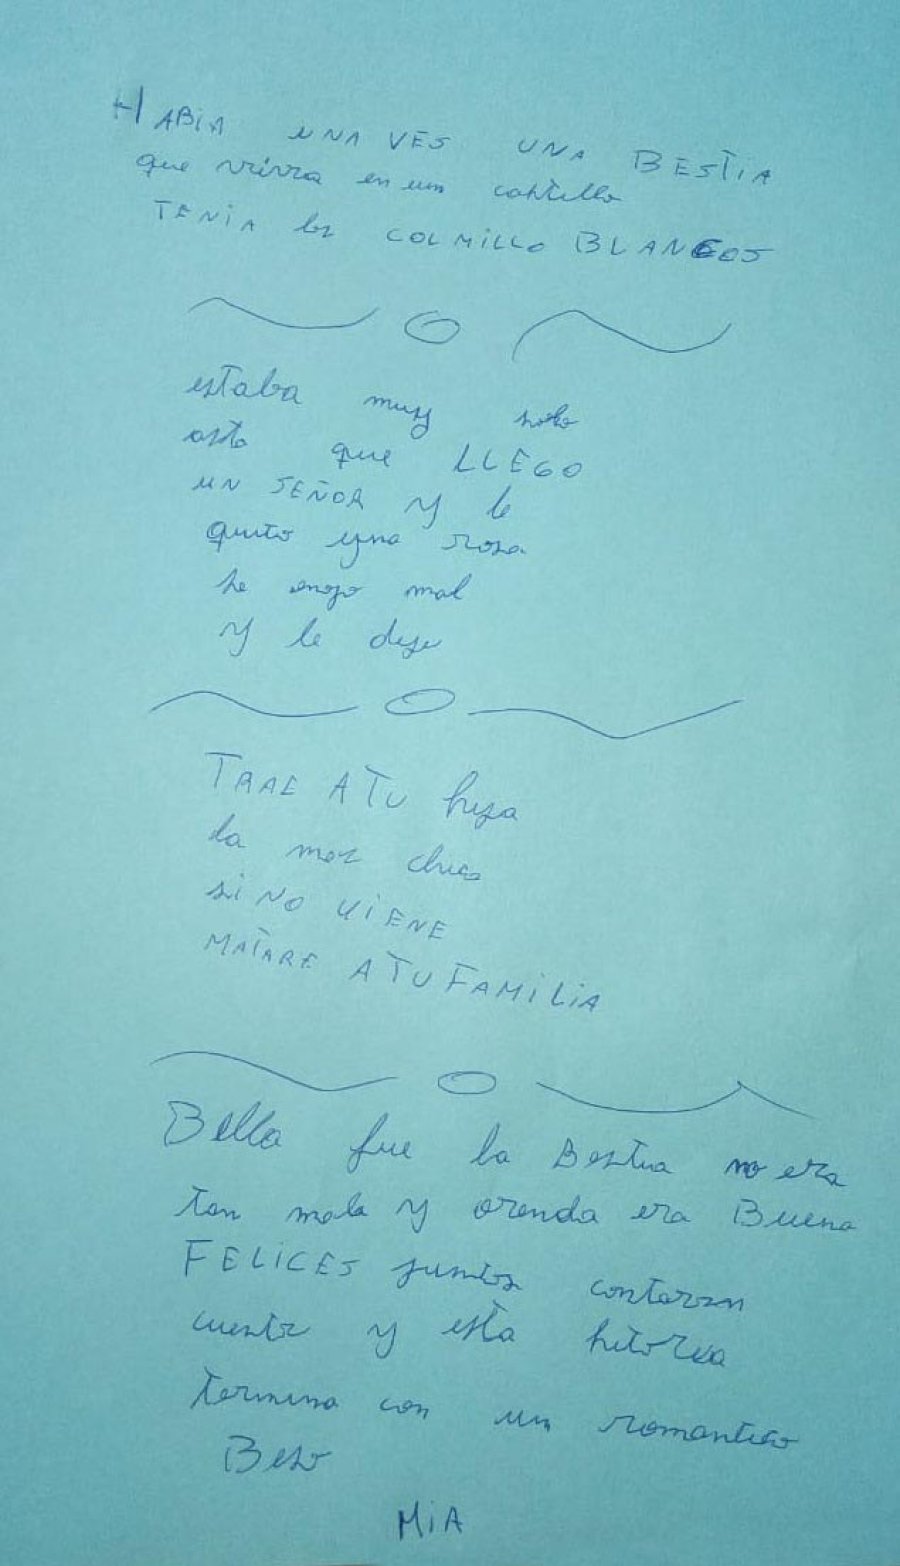 HABIA UNA VES UNA BESTIA
que vivia en un castillo
TENIA los COLMILLO BLANCOS
estaba muy solo
asta que LLEGO
UN SEÑOR y le
quito una rosa
se enojo mal
y le dijo
TRAE A TU hija
la mas chica
si NO VIENE
MATARE A TU FAMILIA
Bella fue la Bestia no era
tan mala y orenda era Buena
FELICES juntos contaron
cuentos y esta hitoria
termina con un romantico
Beso
MIA